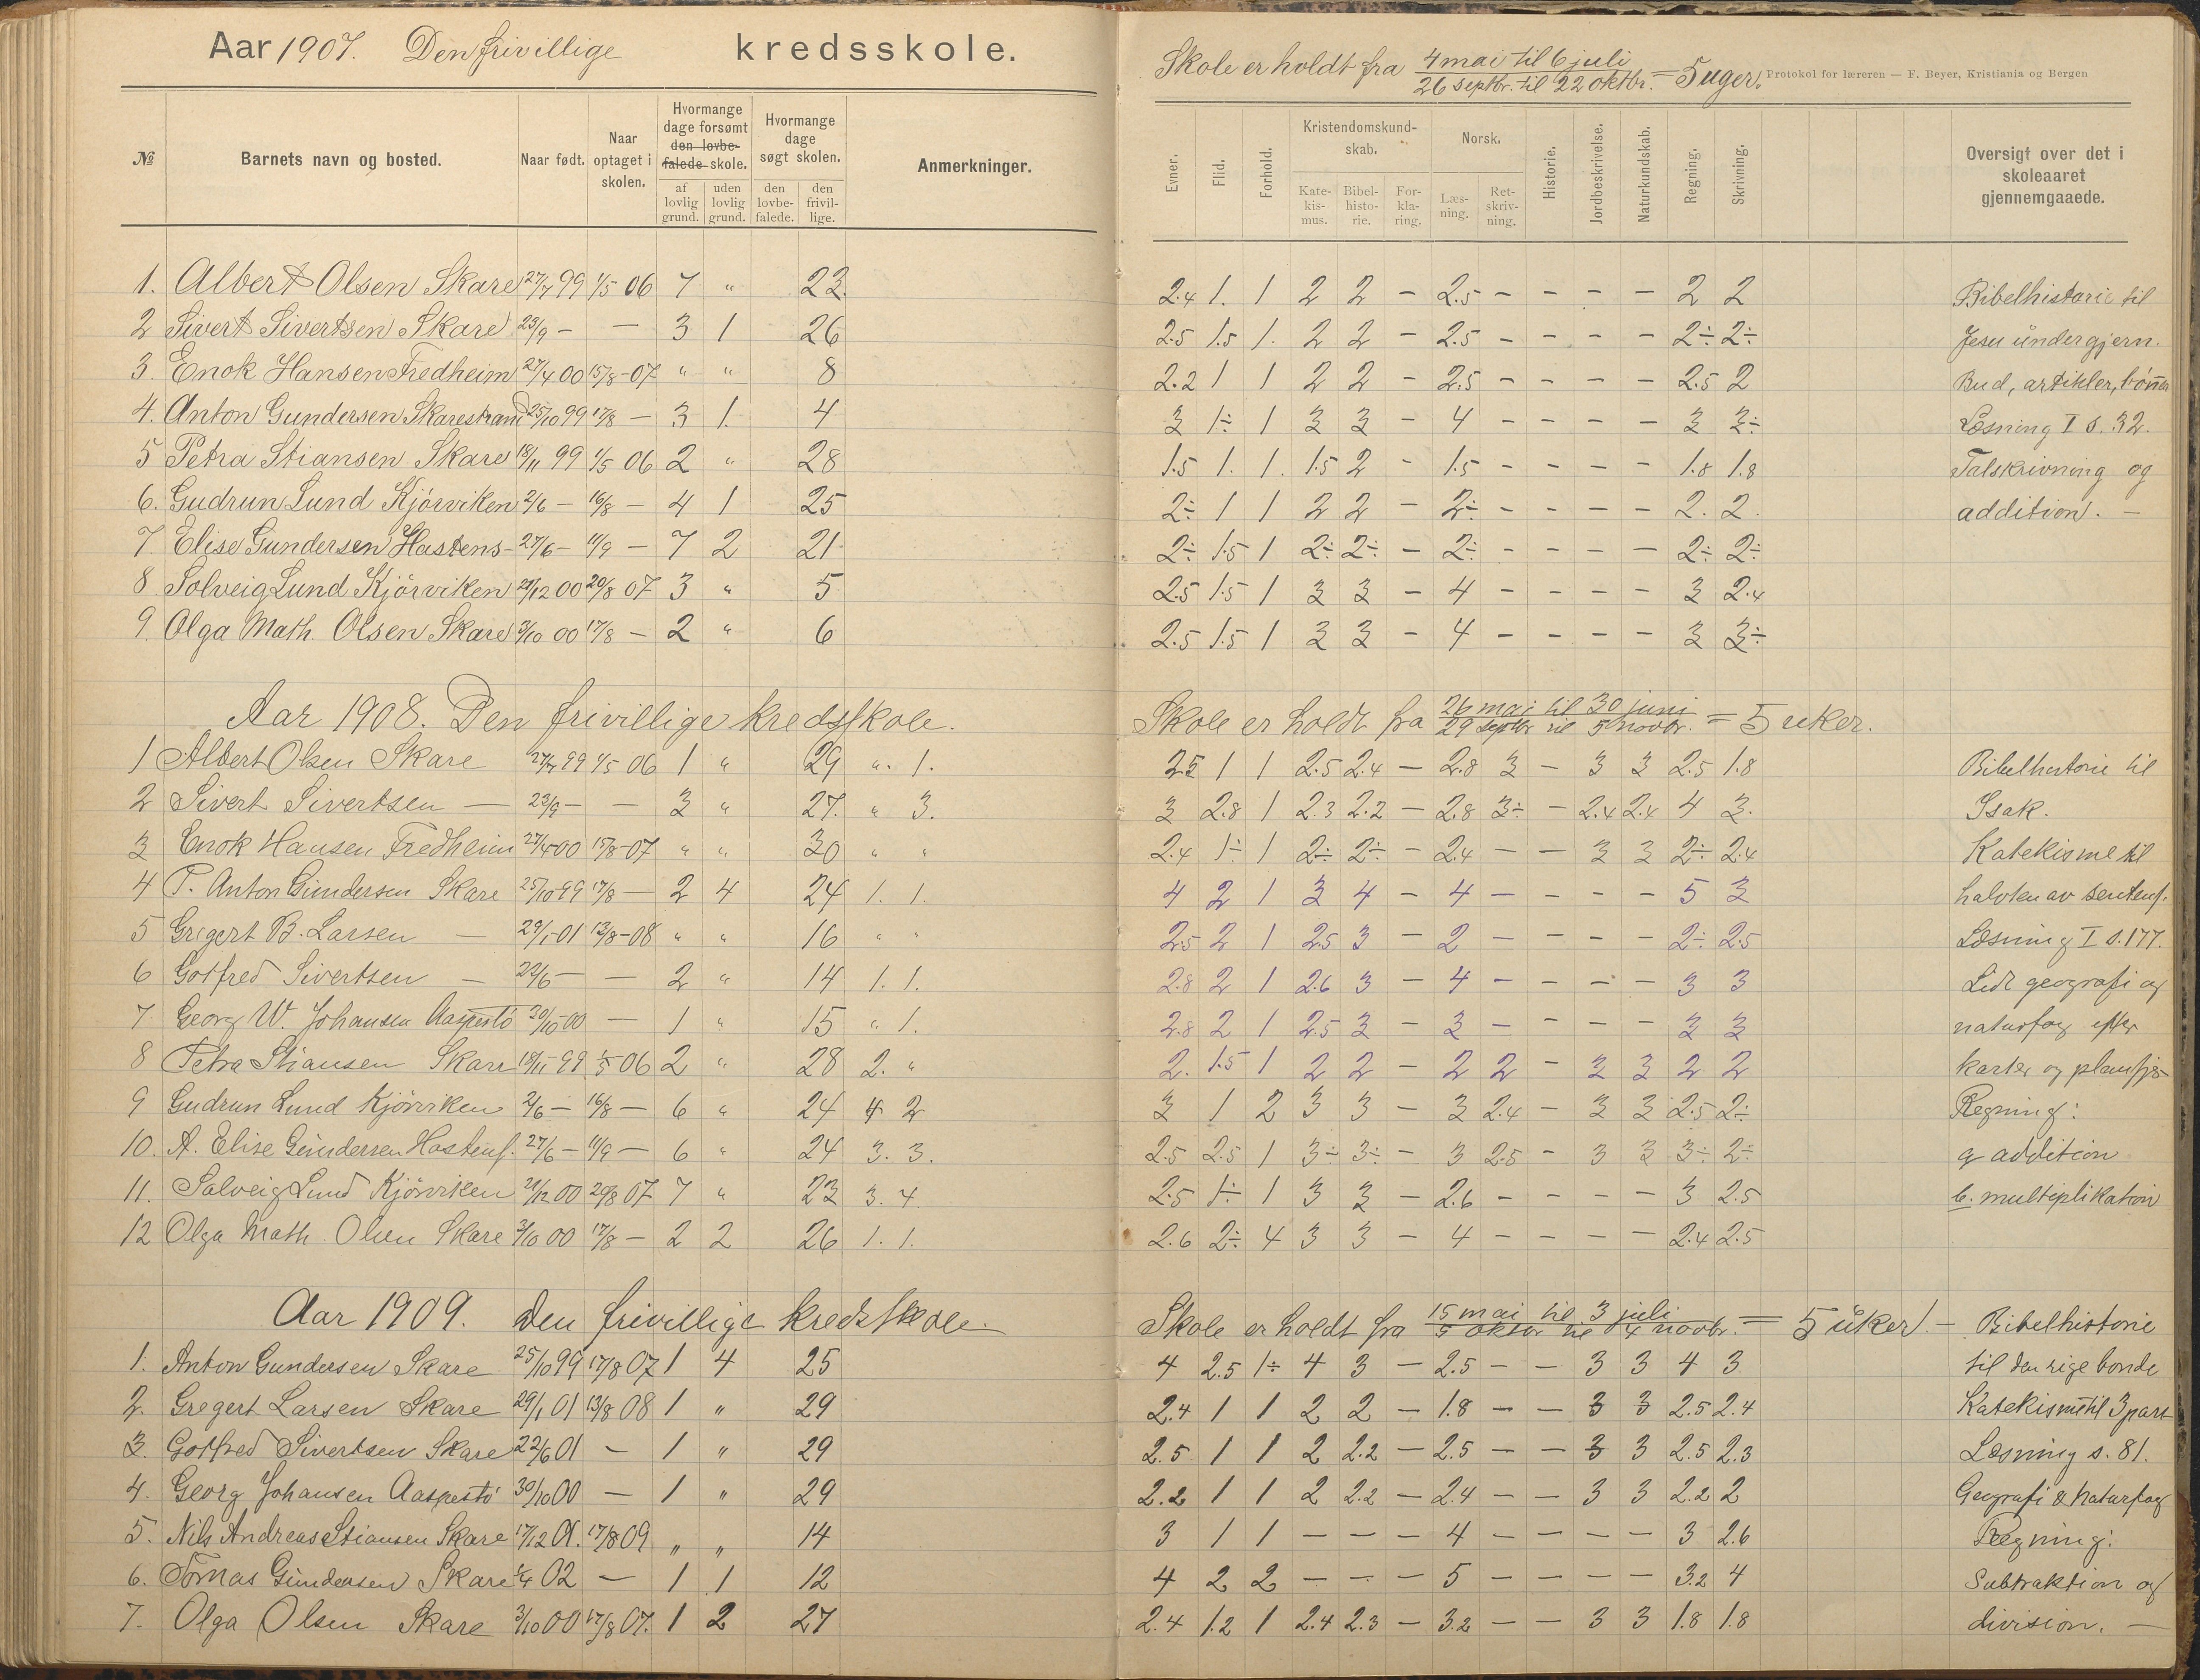 Aar 1907. Den frivillige kredsskole.
№ Barnets navn og bosted. Naar født. Naar optaget i skolen. Hvormange dage forsømt den lovbefalede skole. af lovlig grund. uden lovlig grund. Hvormange dage søgt skolen. den lovbefalede. den frivillige. Anmerkninger.
1. Albert Olsen Skare 27/7 99 1/5 06 7 „ 22.
2 Sivert Sivertsen Skare 23/9 – – 3 1 26
3. Enok Hansen Fredheim 27/4 00 15/8-07 „ „ 8
4. Anton Gundersen Skarestrand 25/10 99 17/8 – 3 1. 4
5 Petra Stiansen Skare 18/11 99 1/5 06 2 „ 28
6. Gudrun Lund Kjörviken 2/6 – 16/8 – 4 1 25
7. Elise Gundersen Hastens- 27/6 – 11/9 – 7 2 21
8 Solveig Lund Kjörviken 21/12 00 20/8 07 3 „ 5
9. Olga Math. Olsen Skare 3/10 00 17/8 – 2 „ 6
Aar 1908. Den frivillige kredsskole.
1 Albert Olsen Skare 27/7 99 1/5 06 1 „ 29 „. 1.
2 Sivert Sivertsen – 23/9 – – 3 „ 27. „ 3.
3 Enok Hansen Fredheim 27/4 00 15/8-07 „ „ 30 „ „
4 P. Anton Gundersen Skare 25/10 99 17/8 – 2 4 24 1. 1.
5 Gregert B. Larsen – 29/1-01 13/8-08 „ „ 16 „ „
6 Gotfred Sivertsen – 22/6 – – 2 „ 14 1. 1.
7 Georg W. Johansen Aaspestö 30/10-00 – 1 „ 15 „ 1.
8 Petra Stiansen Skare 18/11 99 1/5 06 2 „ 28 2. „
9 Gudrun Lund Kjörviken 2/6 – 16/8 – 6 „ 24 4 2
10. A. Elise Gundersen Hastensf. 27/6 – 11/9 – 6 „ 24 3. 3.
11. Solveig Lund Kjörviken 21/12 00 20/8 07 7 „ 23 3. 4.
12 Olga Math. Olsen Skare 3/10 00 17/8 – 2 2 26 1. 1.
Aar 1909. den frivillige kredsskole.
1. Anton Gundersen Skare 25/10 99 17/8 07 1 4 25
2. Gregert Larsen Skare 29/1 01 13/8 08 1 „ 29
3. Gotfred Sivertsen Skare 22/6 01 – 1 „ 29
4. Georg Johansen Aaspestö 30/10 00 – 1 „ 29
5. Nils Andreas Stiansen Skare 17/12 01. 17/8 09 „ „ 14
6. Tomas Gundersen Skare 1/4 02 – 1 1 12
7. Olga Olsen Skare 3/10 00 17/8 07. 1 2 27
Skole er holdt fra 4 mai til 6 juli
26 septbr. til 22 oktbr. = 5 uger.
Protokol for læreren — F. Beyer, Kristiania og Bergen
Evner. Flid. Forhold. Kristendomskundskab. Katekismus. Bibelhistorie. Forklaring. Norsk. Læsning. Retskrivning. Historie. Jordbeskrivelse. Naturkundskab. Regning. Skrivning. Oversigt over det i skoleaaret gjennemgaaede.
2.4 1. 1 2 2 – 2.5 – – – – 2 2 Bibelhistorie til
2.5 1.5 1. 2 2 – 2.5 – – – – 2÷ 2÷ Jesu undergjern.
2.2 1 1 2 2 – 2.5 – – – – 2.5 2 Bud, artikler, bönnen
3 1÷ 1 3 3 – 4 – – – – 3 3÷ Læsning I s. 32.
1.5 1. 1. 1.5 2 – 1.5 – – – – 1.8 1.8 Talskrivning og
2÷ 1 1 2 2 – 2÷ – – – – 2. 2. addition. –
2÷ 1.5 1 2÷ 2÷ – 2÷ – – – – 2÷ 2÷
2.5 1.5 1 3 3 – 4 – – – – 3 2.4
2.5 1.5 1 3 3 – 4 – – – – 3 3÷
Skole er holdt fra 26 mai til 30 juni
29 septbr til 5 novbr. = 5 uker.
2.5 1 1 2.5 2.4 – 2.8 3 – 3 3 2.5 1.8 Bibelhistorie til
3 2.8 1 2.3 2.2 – 2.8 3÷ – 2.4 2.4 4 3. Isak.
2.4 1÷ 1 2÷ 2÷ – 2.4 – – 3 3 2÷ 2.4 Katekisme til
4 2 1 3 4 – 4 – – – – 5 3 halvten av
2.5 2 1 2.5 3 – 2 – – – – 2÷ 2.5 Læsning I s. 177.
2.8 2 1 2.6 3 – 4 – – – – 3 3 Lidt geografi og
2.8 2 1 2.5 3 – 3 – – – – 3 3 naturfag efter
2. 1.5 1 2 2 – 2 2 – 3 3 2 2 karter og
3 1 2 3 3 – 3 2.4 – 3 3 2.5 2÷ Regning:
2.5 2.5 1 3÷ 3÷ – 3 2.5 – 3 3 3÷ 2÷ a addition
2.5 1÷ 1 3 3 – 2.6 – – – – 3 2.5 b. multiplikation
2.6 2÷ 4 3 3 – 4 – – – – 2.4 2.5
Skole er holdt fra 15 mai til 3 juli
5 oktbr til 4 novbr. = 5 uker. – Bibelhistorie
4 2.5 1÷ 4 3 – 2.5 – – 3 3 4 3 til den rige bonde
2.4 1 1 2 2 – 1.8 – – 3 3 2.5 2.4 Katekisme til 3 part
2.5 1 1 2 2.2 – 2.5 – – 3 3 2.5 2.3 Læsning s. 81.
2.2 1 1 2 2.2 – 2.4 – – 3 3 2.2 2 Geografi & naturfag
3 1 1 – – – 4 – – – – 3 2.6 Regning:
4 2 2 – – – 5 – – – – 3.2 4 Subtraktion og
2.4 1.2 1 2.4 2.3 – 3.2 – – 3 3 1.8 1.8 division. –